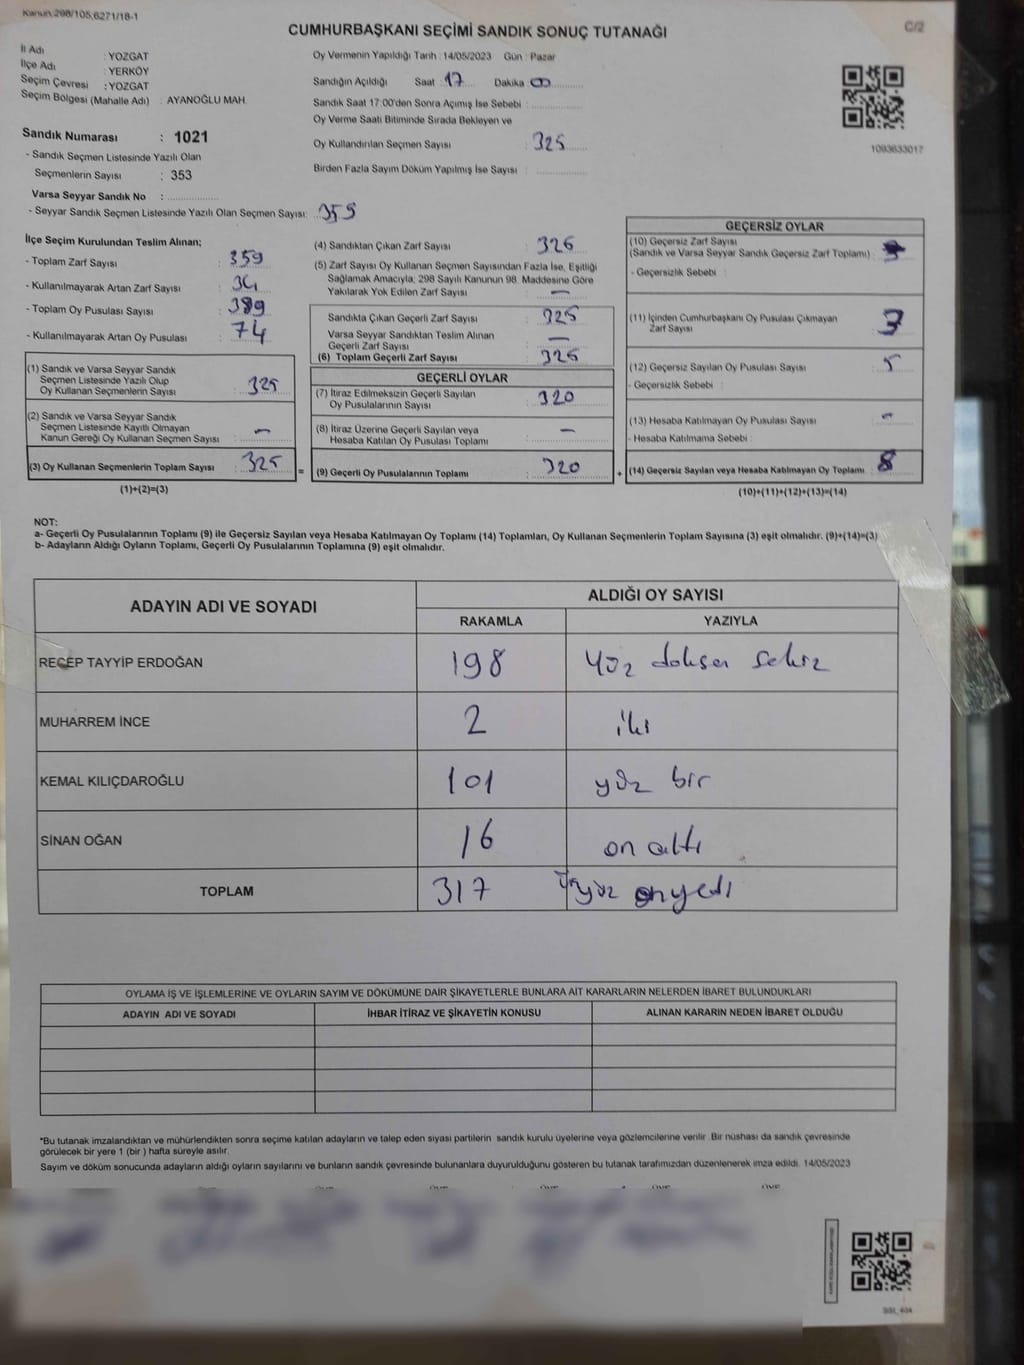 Kanun:298/105,6271/18-1
CUMHURBAŞKANI SEÇİMİ SANDIK SONUÇ TUTANAĞI
C/2
İl Adı : YOZGAT
İlçe Adı : YERKÖY
Seçim Çevresi : YOZGAT
Seçim Bölgesi (Mahalle Adı) : AYANOĞLU MAH.
Sandık Numarası : 1021
- Sandık Seçmen Listesinde Yazılı Olan
Seçmenlerin Sayısı : 353
Varsa Seyyar Sandık No :
- Seyyar Sandık Seçmen Listesinde Yazılı Olan Seçmen Sayısı:
Oy Vermenin Yapıldığı Tarih : 14/05/2023 Gün : Pazar
Sandığın Açıldığı Saat 17 Dakika 00
Sandık Saat 17:00'den Sonra Açımış İse Sebebi :
Oy Verme Saati Bitiminde Sırada Bekleyen ve
Oy Kullandırılan Seçmen Sayısı : 325
Birden Fazla Sayım Döküm Yapılmış İse Sayısı :
1093633017
İlçe Seçim Kurulundan Teslim Alınan;
- Toplam Zarf Sayısı : 359
- Kullanılmayarak Artan Zarf Sayısı : 34
- Toplam Oy Pusulası Sayısı : 389
- Kullanılmayarak Artan Oy Pusulası : 74
(1) Sandık ve Varsa Seyyar Sandık
Seçmen Listesinde Yazılı Olup
Oy Kullanan Seçmenlerin Sayısı : 325
(2) Sandık ve Varsa Seyyar Sandık
Seçmen Listesinde Kayıtlı Olmayan
Kanun Gereği Oy Kullanan Seçmen Sayısı : —
(3) Oy Kullanan Seçmenlerin Toplam Sayısı : 325 =
(1)+(2)=(3)
(4) Sandıktan Çıkan Zarf Sayısı : 325
(5) Zarf Sayısı Oy Kullanan Seçmen Sayısından Fazla İse, Eşitliği
Sağlamak Amacıyla; 298 Sayılı Kanunun 98. Maddesine Göre
Yakılarak Yok Edilen Zarf Sayısı : —
Sandıkta Çıkan Geçerli Zarf Sayısı : 325
Varsa Seyyar Sandıktan Teslim Alınan
Geçerli Zarf Sayısı : —
(6) Toplam Geçerli Zarf Sayısı : 325
GEÇERLİ OYLAR
(7) İtiraz Edilmeksizin Geçerli Sayılan
Oy Pusulalarının Sayısı : 320
(8) İtiraz Üzerine Geçerli Sayılan veya
Hesaba Katılan Oy Pusulası Toplamı : —
(9) Geçerli Oy Pusulalarının Toplamı : 320 +
GEÇERSİZ OYLAR
(10) Geçersiz Zarf Sayısı
(Sandık ve Varsa Seyyar Sandık Geçersiz Zarf Toplamı) :
- Geçersizlik Sebebi :
(11) İçinden Cumhurbaşkanı Oy Pusulası Çıkmayan
Zarf Sayısı : 3
(12) Geçersiz Sayılan Oy Pusulası Sayısı : 5
- Geçersizlik Sebebi :
(13) Hesaba Katılmayan Oy Pusulası Sayısı : -
- Hesaba Katılmama Sebebi :
(14) Geçersiz Sayılan veya Hesaba Katılmayan Oy Toplamı : 8
(10)+(11)+(12)+(13)=(14)
NOT:
a- Geçerli Oy Pusulalarının Toplamı (9) ile Geçersiz Sayılan veya Hesaba Katılmayan Oy Toplamı (14) Toplamları, Oy Kullanan Seçmenlerin Toplam Sayısına (3) eşit olmalıdır. (9)+(14)=(3)
b- Adayların Aldığı Oyların Toplamı, Geçerli Oy Pusulalarının Toplamına (9) eşit olmalıdır.
ADAYIN ADI VE SOYADI ALDIĞI OY SAYISI
RAKAMLA YAZIYLA
RECEP TAYYİP ERDOĞAN 198 Yüz doksan sekiz
MUHARREM İNCE 2 iki
KEMAL KILIÇDAROĞLU 101 yüz bir
SİNAN OĞAN 16 on altı
TOPLAM 317 Üçyüz onyedi
OYLAMA İŞ VE İŞLEMLERİNE VE OYLARIN SAYIM VE DÖKÜMÜNE DAİR ŞİKAYETLERLE BUNLARA AİT KARARLARIN NELERDEN İBARET BULUNDUKLARI
ADAYIN ADI VE SOYADI İHBAR İTİRAZ VE ŞİKAYETİN KONUSU ALINAN KARARIN NEDEN İBARET OLDUĞU
*Bu tutanak imzalandıktan ve mühürlendikten sonra seçime katılan adayların ve talep eden siyasi partilerin sandık kurulu üyelerine veya gözlemcilerine verilir. Bir nüshası da sandık çevresinde
görülecek bir yere 1 (bir ) hafta süreyle asılır.
Sayım ve döküm sonucunda adayların aldığı oyların sayılarını ve bunların sandık çevresinde bulunanlara duyurulduğunu gösteren bu tutanak tarafımızdan düzenlenerek imza edildi. 14/05/2023